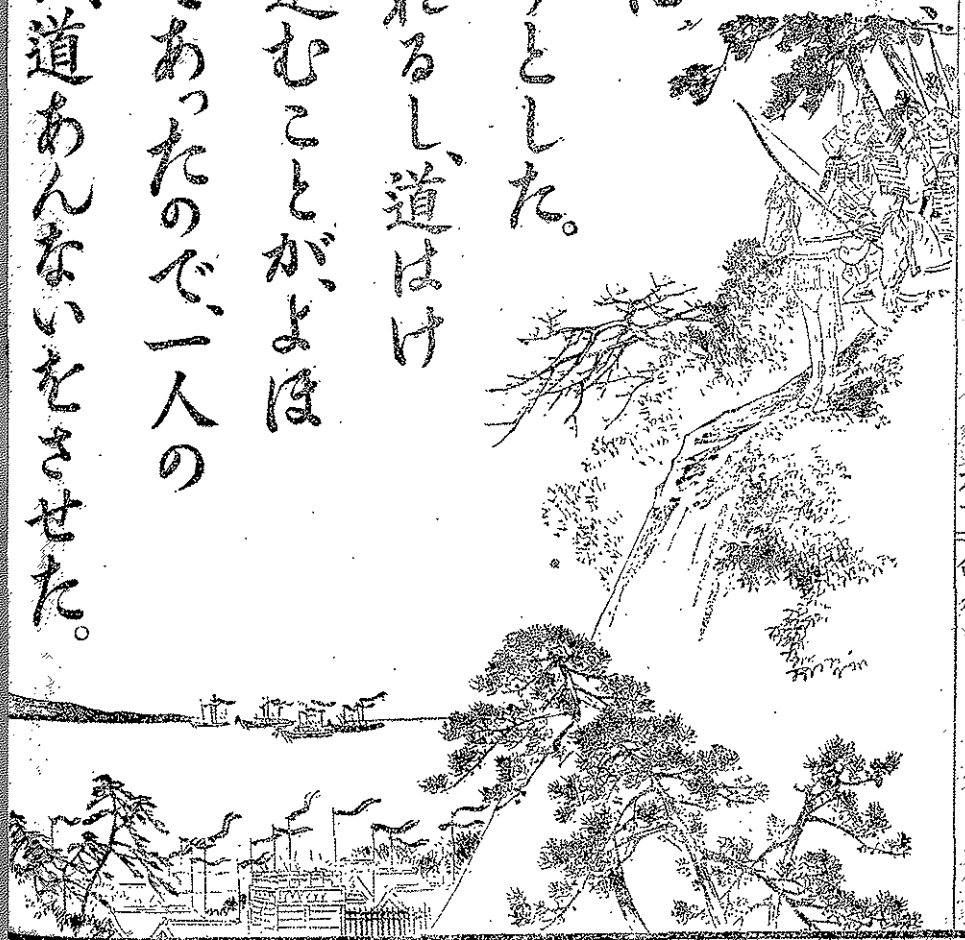 とした。
るし、道はけ
むことが、よほ
あったので、一人の
道あんないをさせた。